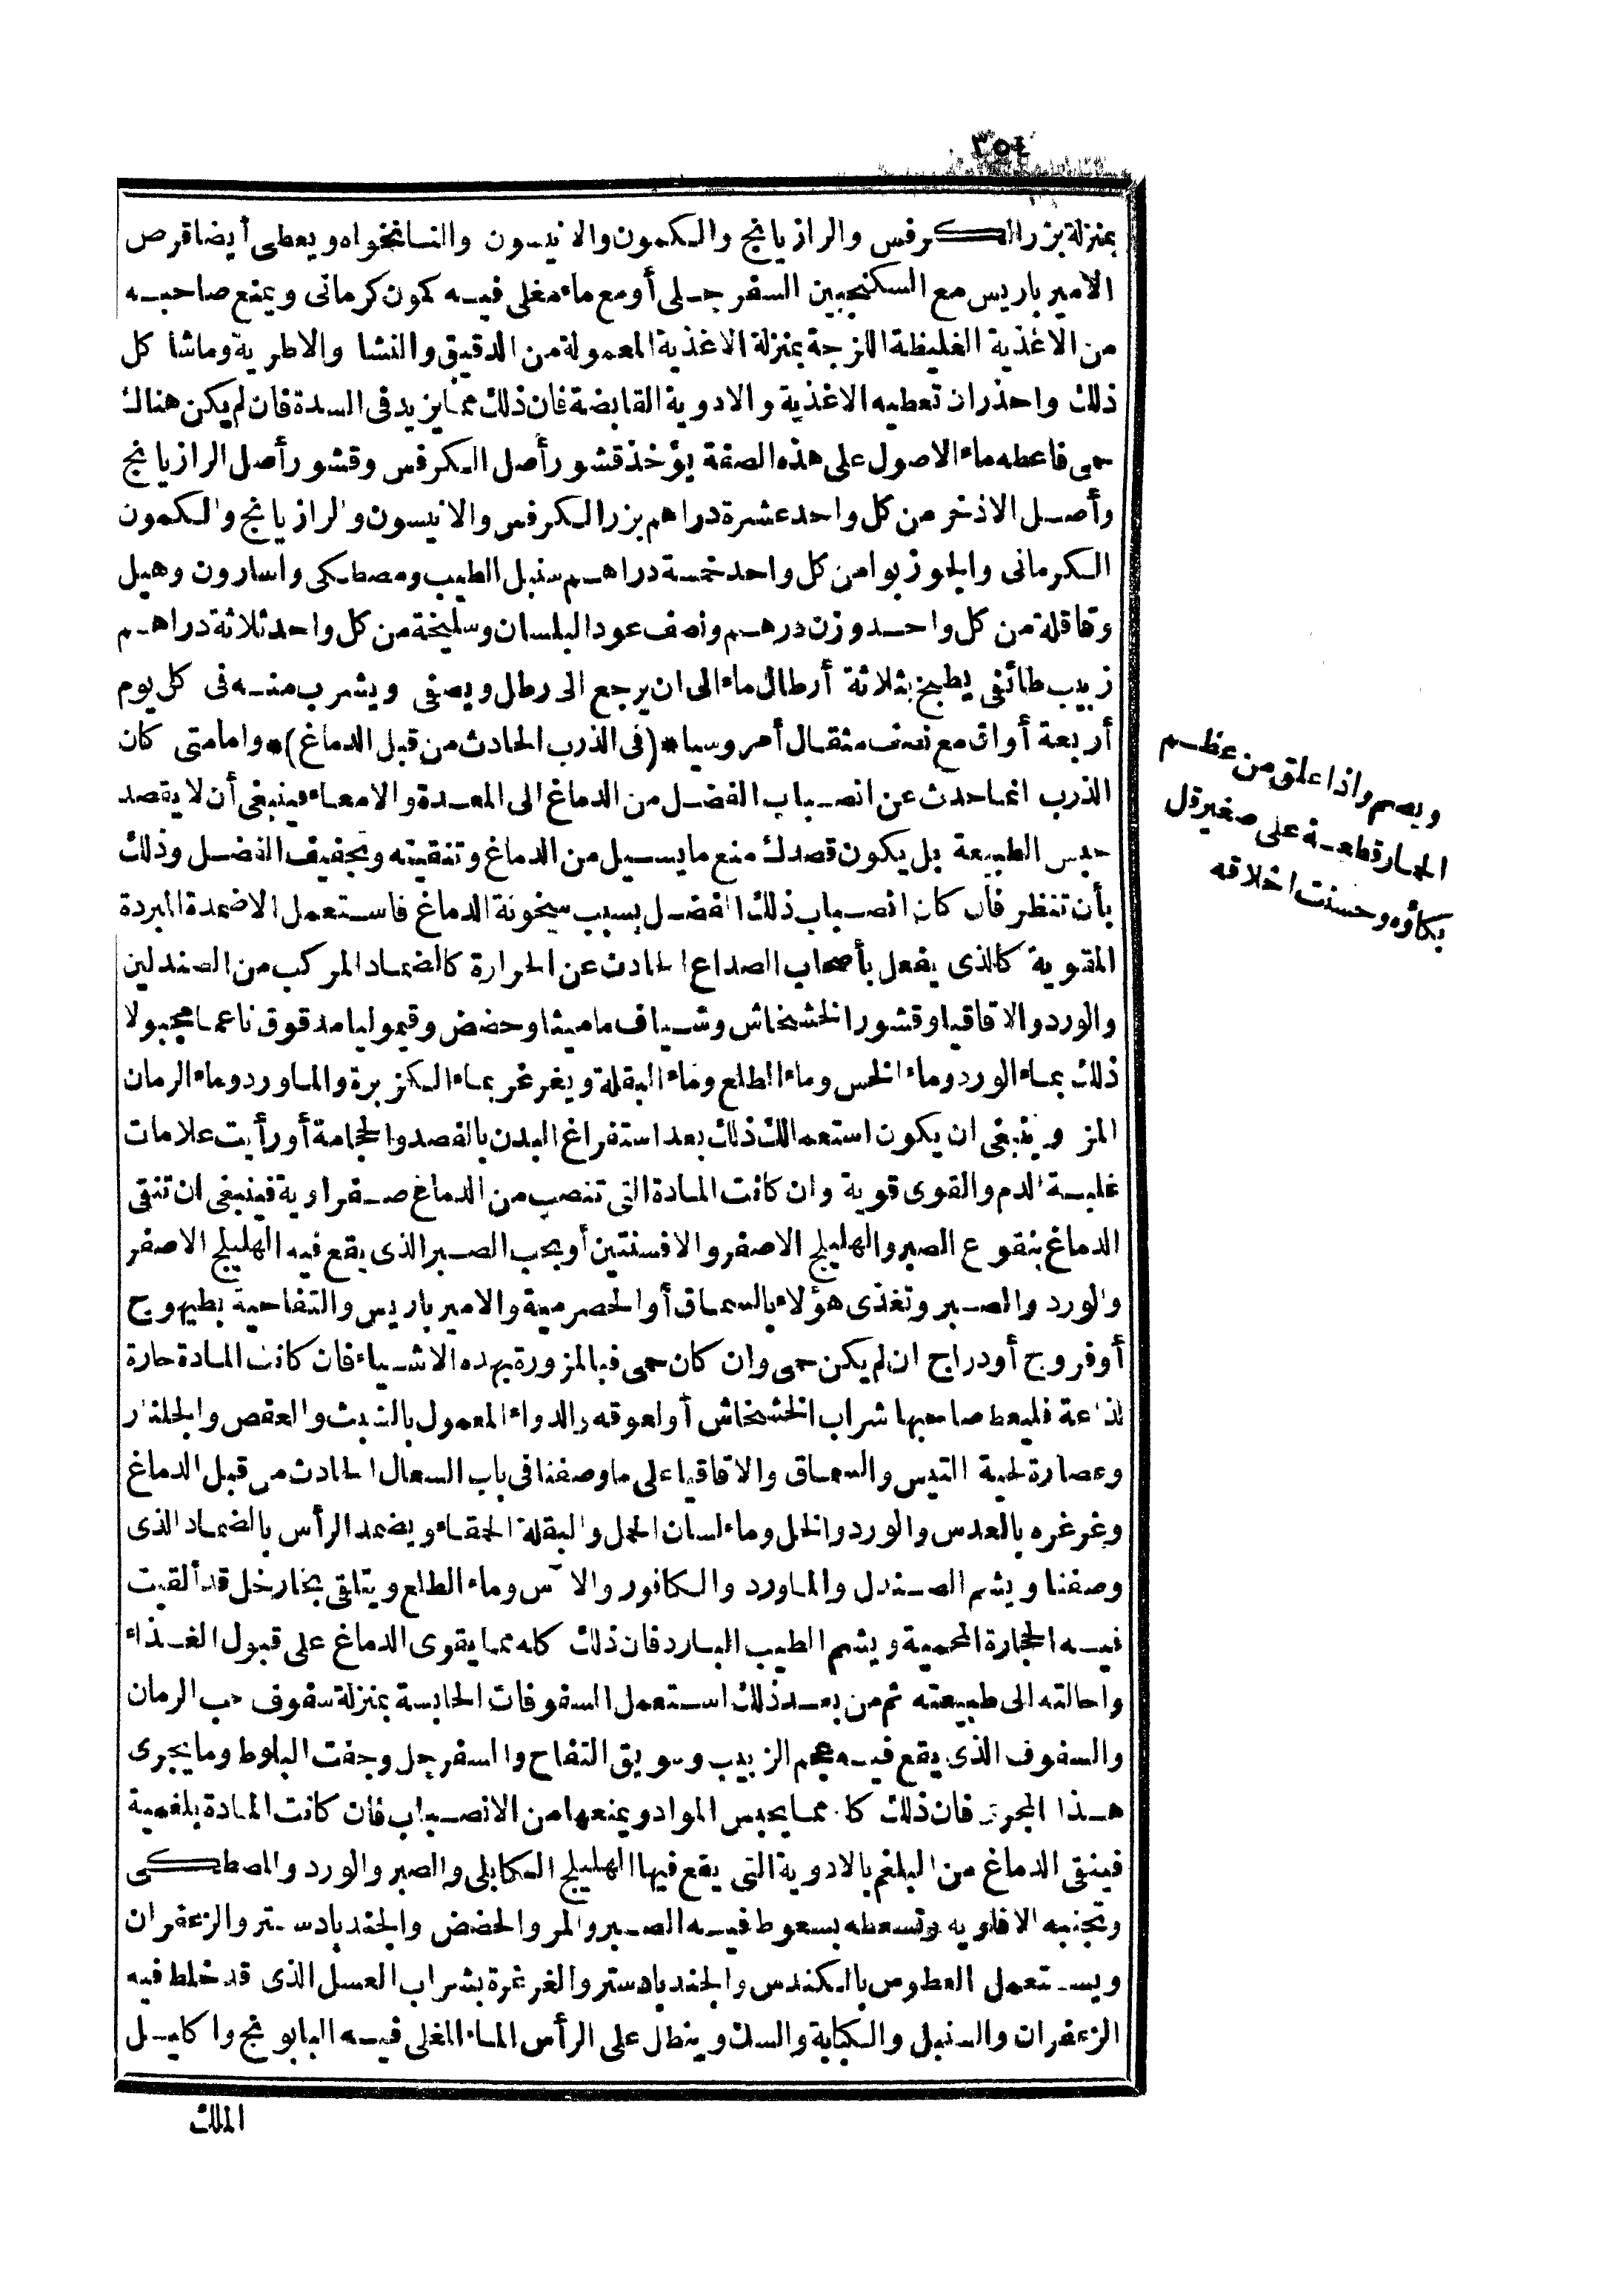 ٣٥٤
بمنزلة بزر الكرفس والرازيانج والكمون والانيسون والنانخواه ويعطى أيضا قرص
الامير باريس مع السكنجبين السفرجلى أو مع ماء مغلى فيه كمون كرمانى ويمنع صاحبه
من الاغذية الغليظة اللزجة بمنزلة الاغذية المعمولة من الدقيق والنشا والاطرية وما شاكل
ذلك واحذر ان تعطيه الاغذية والادوية القابضة فان ذلك مما يزيد فى السدة فان لم يكن هناك
حمى فاعطه ماء الاصول على هذه الصفة يؤخذ قشور أصل الكرفس وقشور أصل الرازيانج
وأصل الاذخر من كل واحد عشرة دراهم بزر الكرفس والانيسون والرازيانج والكمون
الكرمانى والجوز بوا من كل واحد خمسة دراهم سنبل الطيب ومصطكى واسارون وهيل
وقاقلة من كل واحد وزن درهم ونصف عود البلسان وسليخة من كل واحد ثلاثة دراهم
زبيب طائفى يطبخ بثلاثة أرطال ماء الى ان يرجع الى رطل ويصفى ويشرب منه فى كل يوم
أربعة أواق مع نصف مثقال أمروسيا *(فى الذرب الحادث من قبل الدماغ)* واما متى كان
الذرب انما حدث عن انصباب الفضل من الدماغ الى المعدة والامعاء فينبغى أن لا يقصد
حبس الطبيعة بل يكون قصدك منع ما يسيل من الدماغ وتنقيته وتجفيف الفضل وذلك
بأن تنظر فان كان انصباب ذلك الفضل بسبب سخونة الدماغ فاستعمل الاضمدة المبردة
المقوية كالذى يفعل بأصحاب الصداع الحادث عن الحرارة كالضماد المركب من الصندلين
والورد والاقاقيا وقشور الخشخاش وشياف ماميثا وحضض وقيموليا مدقوق ناعما مجبولا
ذلك بماء الورد وماء الخس وماء الطلع وماء البقلة ويغرغر بماء الكزبرة والماورد وماء الرمان
المز وينبغى ان يكون استعمالك ذلك بعد استفراغ البدن بالفصد والحجامة أو رأيت علامات
غلبة الدم والقوى قوية وان كانت المادة التى تنصب من الدماغ صفراوية فينبغى ان تنقى
الدماغ بنقوع الصبر والهليلج الاصفر والافسنتين أو بحب الصبر الذى يقع فيه الهليلج الاصفر
والورد والصبر وتغذى هؤلاء بالسماق أو الحصرمية والامير باريس والتفاحية بطيهوج
أو فروج أو دراج ان لم يكن حمى وان كان حمى فبالمزورة بهذه الاشياء فان كانت المادة حارة
لذاعة فليعط صاحبها شراب الخشخاش أو لعوقه والدواء المعمول بالشبث والعفص والجلنار
وعصارة لحية التيس والسماق والاقاقيا على ما وصفنا فى باب السعال الحادث من قبل الدماغ
وغرغره بالعدس والورد والخل وماء لسان الحمل والبقلة الحمقاء ويضمد الرأس بالضماد الذى
وصفنا ويشم الصندل والماورد والكافور والآس وماء الطلع ويتلقى بخار خل قد ألقيت
فيه الحجارة المحمية ويشم الطيب البارد فان ذلك كله مما يقوى الدماغ على قبول الغذاء
واحالته الى طبيعته ثم من بعد ذلك استعمل السفوفات الحابسة بمنزلة سفوف حب الرمان
والسفوف الذى يقع فيه عجم الزبيب وسويق التفاح والسفرجل وجفت البلوط وما يجرى
هذا المجرى فان ذلك كله مما يحبس المواد ويمنعها من الانصباب فان كانت المادة بلغمية
فينقى الدماغ من البلغم بالادوية التى يقع فيها الهليلج الكابلى والصبر والورد والمصطكى
وتجنبه الافاويه وتسعطه بسعوط فيه الصبر والمر والحضض والجندبادستر والزعفران
ويستعمل العطوس بالكندس والجندبادستر والغرغرة بشراب العسل الذى قد خلط فيه
الزعفران والسنبل والكبابة والسك وينطل على الرأس الماء المغلى فيه البابونج واكليل
الملك
وبصم واذا علق من عظم
الحمار قطعة على صغير قل
بكاؤه وحسنت اخلاقه